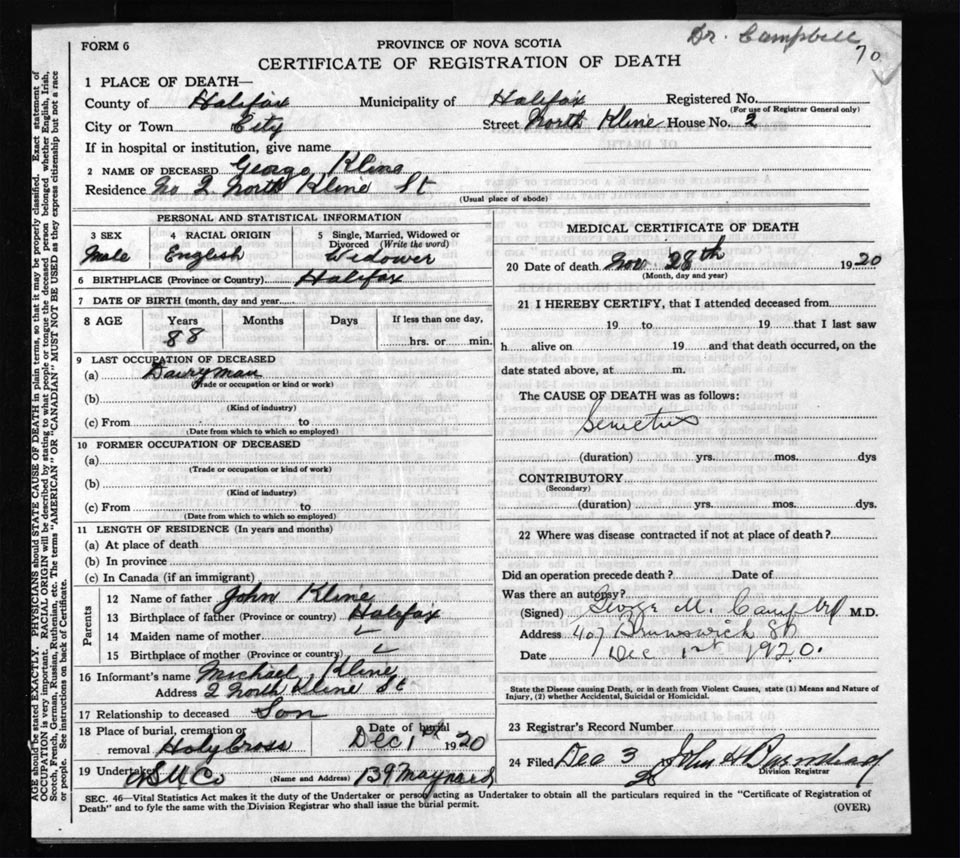 Dr. Campbell
70
FORM 6
PROVINCE OF NOVA SCOTIA
CERTIFICATE OF REGISTRATION OF DEATH
1 PLACE OF DEATH—
County of Halifax Municipality of Halifax Registered No.
(For use of Registrar General only)
City or Town City Street North Kline House No. 2
If in hospital or institution, give name
2 NAME OF DECEASED George Kline
Residence No 2 North Kline St
(Usual place of abode)
PERSONAL AND STATISTICAL INFORMATION
3 SEX Male
4 RACIAL ORIGIN English
5 Single, Married, Widowed or Divorced (Write the word) Widower
6 BIRTHPLACE (Province or Country) Halifax
7 DATE OF BIRTH (month, day and year)
8 AGE Years 88 Months Days If less than one day, hrs. or min.
9 LAST OCCUPATION OF DECEASED
(a) Dairyman
(Trade or occupation or kind or work)
(b)
(Kind of industry)
(c) From to
(Date from which to which so employed)
10 FORMER OCCUPATION OF DECEASED
(a)
(Trade or occupation or kind of work)
(b)
(Kind of industry)
(c) From to
(Date from which to which so employed)
11 LENGTH OF RESIDENCE (In years and months)
(a) At place of death
(b) In province
(c) In Canada (if an immigrant)
Parents
12 Name of father John Kline
13 Birthplace of father (Province or country) Halifax
14 Maiden name of mother
15 Birthplace of mother (Province or country)
16 Informant's name Michael Kline
Address 2 North Kline St
17 Relationship to deceased Son
18 Place of burial, cremation or removal Holy Cross
Date of burial Dec 1st 1920
19 Undertaker NSUCo (Name and Address) 139 Maynard
MEDICAL CERTIFICATE OF DEATH
20 Date of death Nov 28th 1920
(Month, day and year)
21 I HEREBY CERTIFY, that I attended deceased from
19 to 19 that I last saw
h alive on 19 and that death occurred, on the
date stated above, at m.
The CAUSE OF DEATH was as follows:
(duration) yrs. mos. dys
CONTRIBUTORY
(Secondary)
(duration) yrs. mos. dys.
22 Where was disease contracted if not at place of death?
Did an operation precede death? Date of
Was there an autopsy?
(Signed) George M. Campbell M.D.
Address 407 Brunswick St
Date Dec 1st 1920.
State the Disease causing Death, or in death from Violent Causes, state (1) Means and Nature of
Injury, (2) whether Accidental, Suicidal or Homicidal.
23 Registrar's Record Number
24 Filed Dec 3 John H
Division Registrar
SEC. 46—Vital Statistics Act makes it the duty of the Undertaker or person acting as Undertaker to obtain all the particulars required in the "Certificate of Registration of
Death" and to fyle the same with the Division Registrar who shall issue the burial permit.
(OVER)
AGE should be stated EXACTLY. PHYSICIANS should STATE CAUSE OF DEATH in plain terms, so that it may be properly classified. Exact statement of
OCCUPATION is very important. RACIAL ORIGIN will be described by stating to what people or tongue the deceased person belonged, whether English, Irish,
Scotch, French, German, Russian, Ruthenian, etc. The terms "AMERICAN" OR "CANADIAN" MUST NOT BE USED as they express citizenship but not a race
or people. See instructions on back of Certificate.